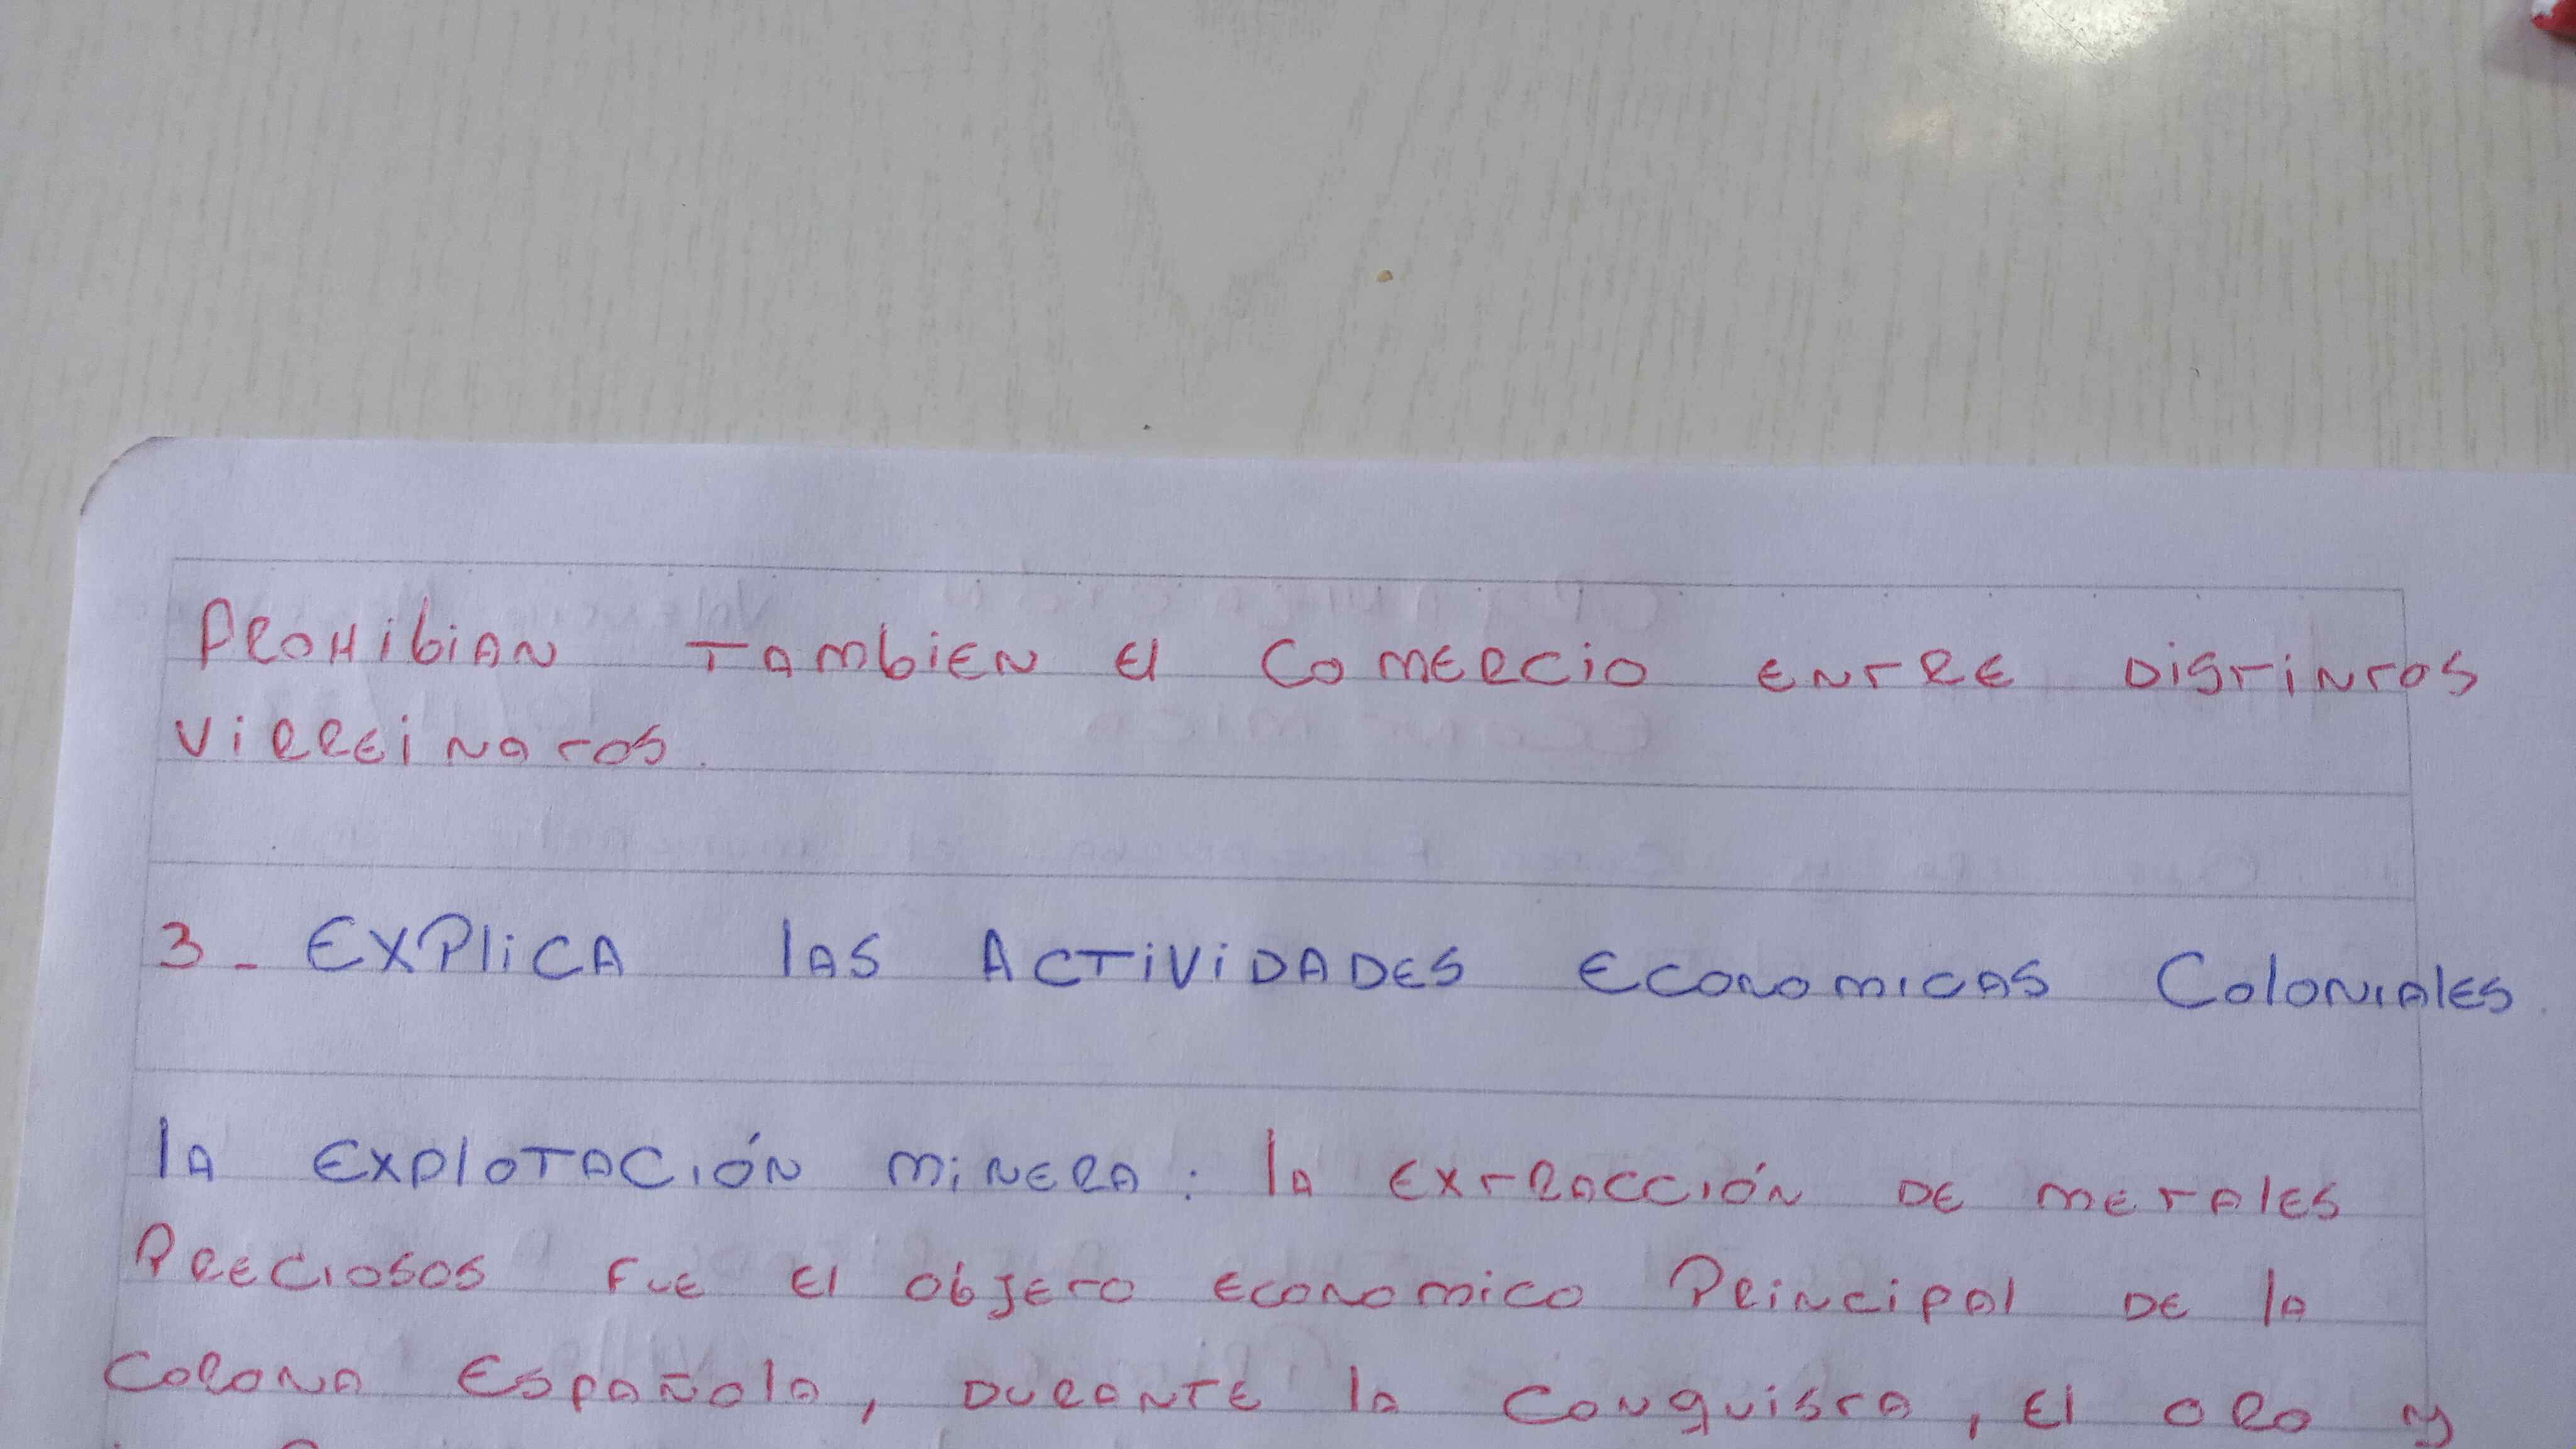 PROHibiAN TAMbiEN El COMERCiO ENTRE DiSTiNTOS
ViRREiNATOS.
3- EXPliCA lAS ACTiViDADES ECONOMICAS COlONIAlES.
lA EXPlOTACIÓN MiNERA: lA EXTRACCIÓN DE METAlES
PRECIOSOS FUE El ObJETO ECONOMICO PRiNCiPAl DE lA
CORONA ESPAÑOlA, DURANTE lA CONQUiSTA, El ORO y